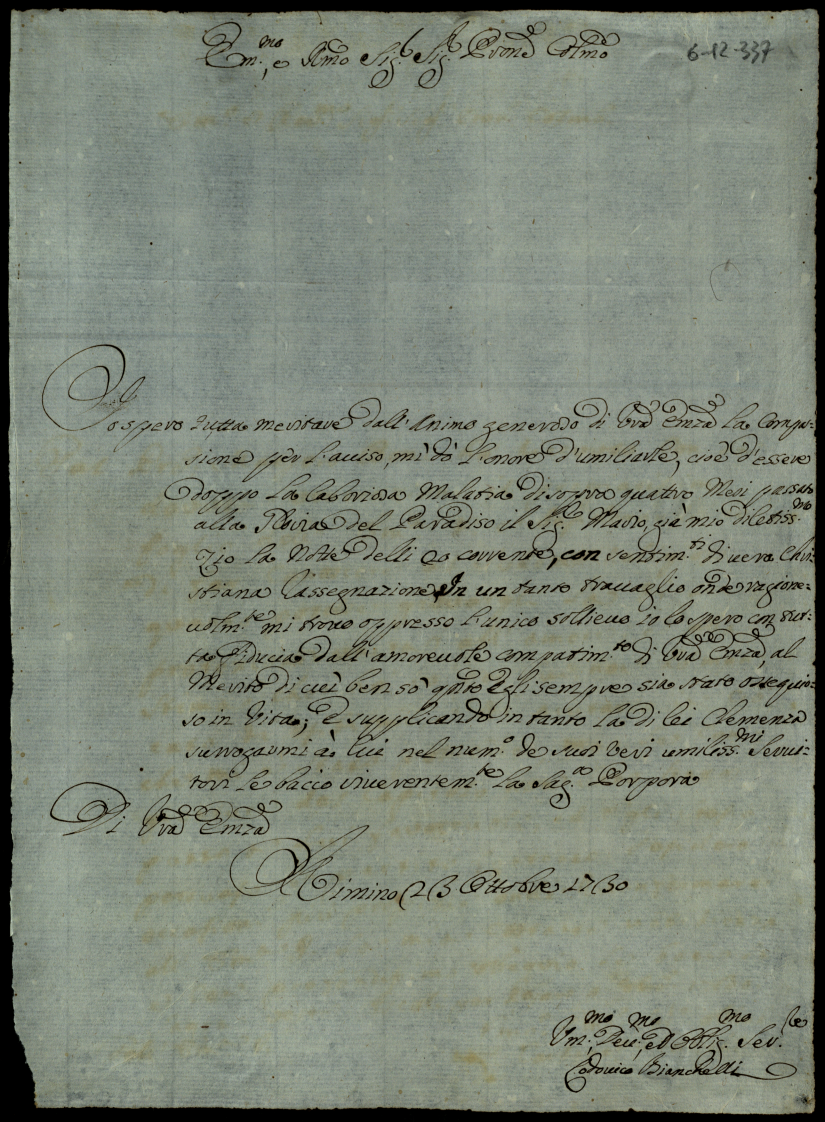 Em.mo, e Rmo Sig.r Sig.r Prone Colmo
6-12-337
Io spero tutta meritare dall'Animo generoso di Vra Emza la Compas=
sione per l'auiso, mi dò l'onore d'umiliarle, cioè d'essere
doppo la laboriosa Malatia di sopra quattro Mesi passato
alla Gloria del Paradiso il Sig.r Mario, già mio dilettiss.mo
Zio la Notte delli 20 corrente, con sentim.ti di uera Chri=
stiana rassegnazione. In un tanto trauaglio onde ragione=
uolm.te mi trouo oppresso l'unico sollieuo io lo spero con tut=
ta Fiducia dall'amoreuole compatim.to di Vra Emza, al
Merito di cui ben sò qnto Egli sempre sia stato ossequio=
so in Vita; E supplicando in tanto la di lei Clemenza
surrogarmi à lui nel num.o de suoi veri umiliss.mi Serui=
tori le baccio riuerentem.te la Sag.a Porpora
Di Vra Emza
Rimino 23 Ottobre 1730
Um.mo, Deu.mo, ed Obblig.mo Ser.re
Lodouico Bianchelli